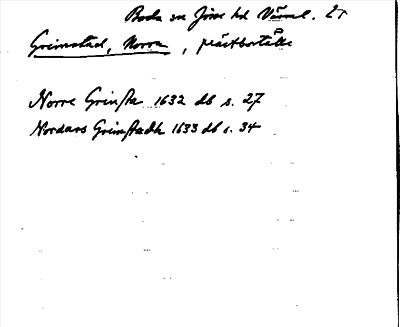 Boda sn Jösse hd Värml. Lt
Grimstad, Norra, prästbortälle
Norre Grinsta 1632 db s. 27
Nordars Grimstadh 1633 db s. 34